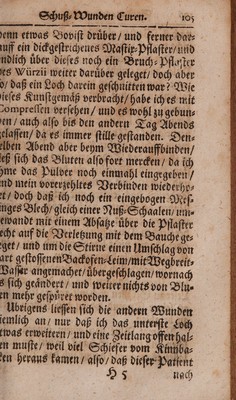 Schuß-Wunden Curen. 105
denn etwas Bovist drüber/ und ferner dar-
auff ein dickgestrichenes Mastix-Pflaster/ und
endlich über dieses noch ein Bruch-Pflaster
des Würzii weiter darüber geleget/ doch aber
so/ daß ein Loch darein geschnitten war? Wie
dieses Kunstgemäß verbracht/ habe ich es mit
Compressen versehen/ und es wohl zu gebun-
den/ auch also bis den andern Tag Abends
gelassen/ da es immer stille gestanden. Den-
selben Abend aber beym Wiederauffbinden/
ließ sich das Bluten also fort mercken/ da ich
das Pulver noch einmahl eingegeben/
und mein vorerzehltes Verbinden wiederho-
let/ doch daß ich noch ein eingebogen Mes-
singes Blech/ gleich einer Nuß-Schaalen/
mit einem Absatze über die Pflaster
recht auff die Verletzung mit dem Bauche ge-
leget/ und um die Stirne einen Umschlag von
gestossenen Backofen-Leim/ mit Wegbreit-
Wasser angemachet/ übergeschlagen/ wornach
es sich geändert/ und weiter nichts von Blu-
ten mehr gespüret worden.
Ubrigens liessen sich die andern Wunden
ziemlich an/ nur daß ich das unterste Loch
etwas erweitern/ und eine Zeitlang offen hal-
ten muste/ weil viel Schiefer vom Kinnba-
cken heraus kamen/ also/ daß dieser Patient
H 5 nach